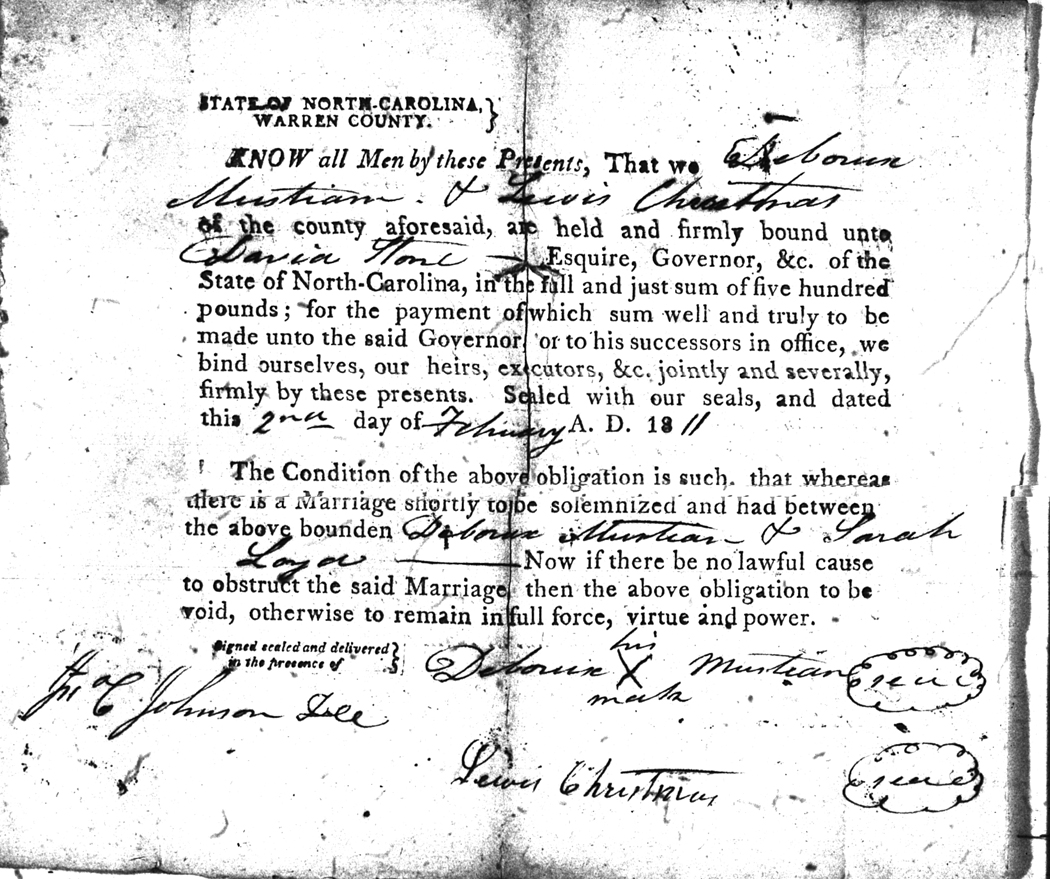 STATE OF NORTH-CAROLINA,
WARREN COUNTY.
KNOW all Men by these Presents, That we Deboux
Mustian & Lewis Christmas
of the county aforesaid, are held and firmly bound unto
David Stone Esquire, Governor, &c. of the
State of North-Carolina, in the full and just sum of five hundred
pounds; for the payment of which sum well and truly to be
made unto the said Governor, or to his successors in office, we
bind ourselves, our heirs, executors, &c. jointly and severally,
firmly by these presents. Sealed with our seals, and dated
this 2nd day of February A. D. 1811
The Condition of the above obligation is such, that whereas
there is a Marriage shortly to be solemnized and had between
the above bounden Deboux Mustian & Sarah
Loyd Now if there be no lawful cause
to obstruct the said Marriage, then the above obligation to be
void, otherwise to remain in full force, virtue and power.
Signed sealed and delivered
in the presence of
his
Deboux X Mustian seal
mark
Jno C Johnson
Lewis Christmas seal